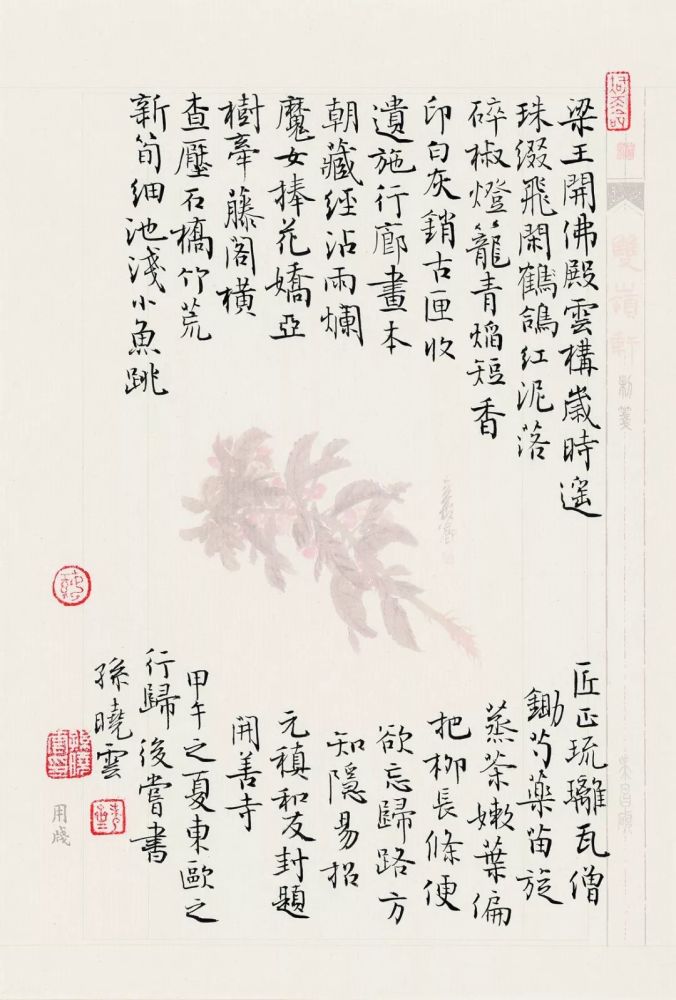 梁王開佛殿雲構歲時遥
珠綴飛閑鶴鴿红泥落
碎椒燈籠青焰短香
印白灰銷古匣收
遺施行廊畫本
朝藏經沾雨爛
魔女捧花嬌亞
樹牽藤閣橫
查壓石橋竹荒
新筍細池淺小魚跳
匠正琉璃瓦僧
鋤芍藥苗旋
蒸茶嫩葉偏
把柳長條便
欲忘歸路方
知隱易招
元稹和友封題
開善寺
甲午之夏東歐之
行歸後嘗書
孫曉雲
雙嶺軒
制箋
用牋